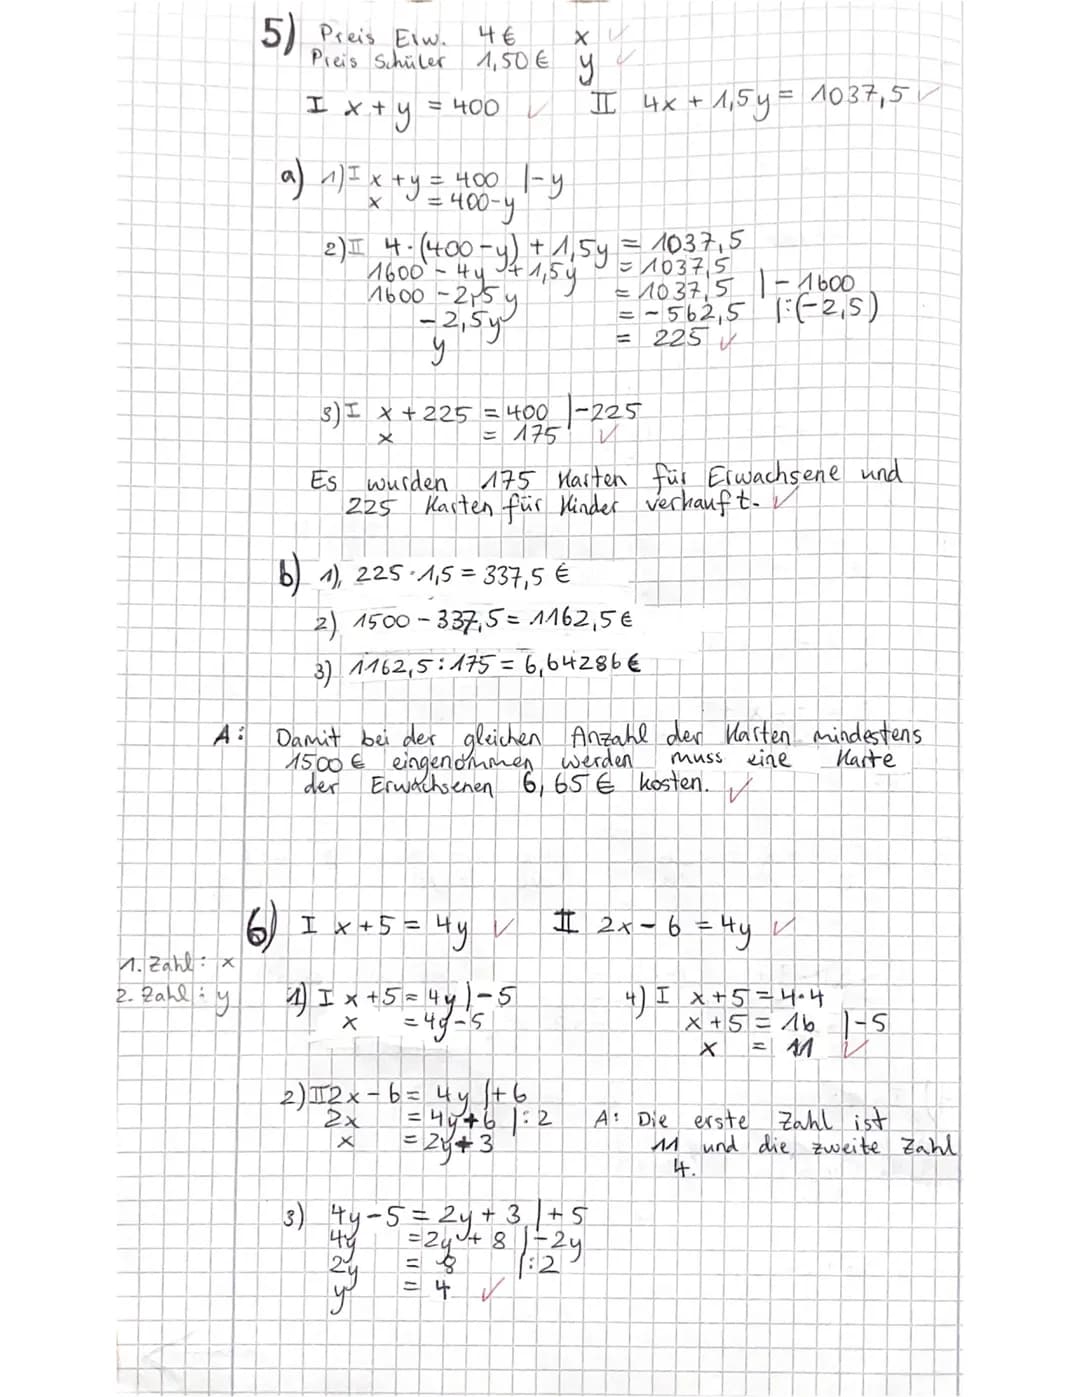 5) Preis Erw. 4€ x ✓
Preis Schüler 1,50€ y ✓
I x+y = 400 ✓ II 4x + 1,5y = 1037,5 ✓
a) 1) I x+y = 400 |-y
x = 400-y
2) II 4·(400-y) + 1,5y = 1037,5
1600 - 4y + 1,5y = 1037,5
1600 - 2,5y = 1037,5 |-1600
-2,5y = -562,5 |:(-2,5)
y = 225 ✓
3) I x + 225 = 400 |-225
x = 175 ✓
Es wurden 175 Karten für Erwachsene und
225 Karten für Kinder verkauft. ✓
b) 1), 225·1,5 = 337,5 €
2) 1500 - 337,5 = 1162,5 €
3) 1162,5 : 175 = 6,64286 €
A: Damit bei der gleichen Anzahl der Karten mindestens
1500 € eingenommen werden muss eine Karte
der Erwachsenen 6,65 € kosten. ✓
6) I x+5 = 4y ✓ II 2x-6 = 4y ✓
1. Zahl: x
2. Zahl: y
1) I x+5 = 4y |-5
x = 4y-5
2) II 2x-6 = 4y |+6
2x = 4y+6 |:2
x = 2y+3
3) 4y-5 = 2y+3 |+5
4y = 2y+8 |-2y
2y = 8 |:2
y = 4 ✓
4) I x+5 = 4·4
x+5 = 16 |-5
x = 11 ✓
A: Die erste Zahl ist
11 und die zweite Zahl
4.